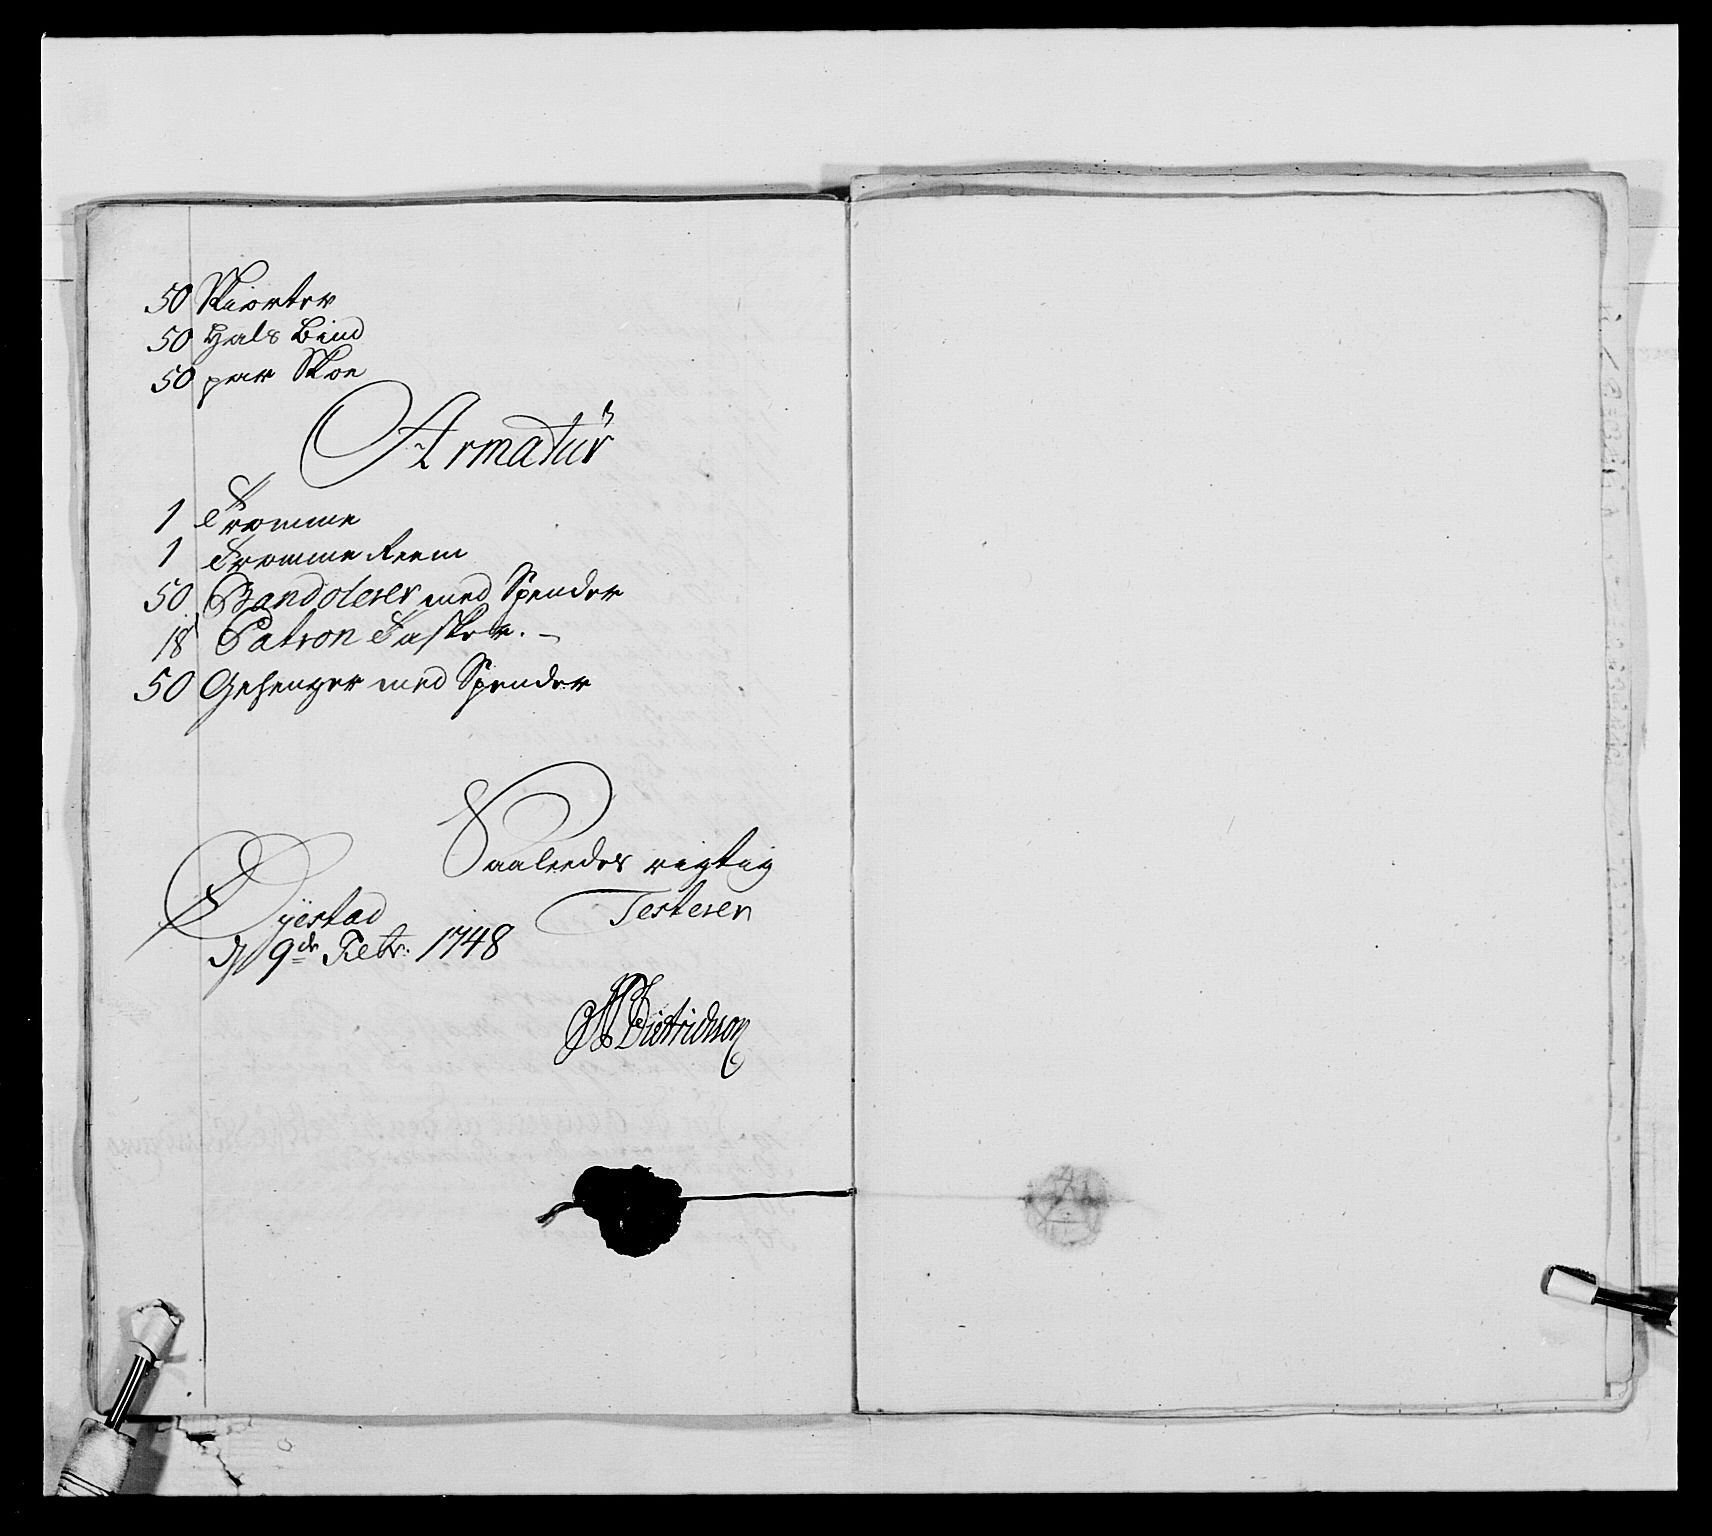 50 Skiorter
50 Hals Bind
50 par Skoe
Armatúr
1 Tromme
1 Tromme Reem
50 Bandolerer med Spender
18 Patron Tasker. –
50 Gehenger med Spender
Saaleedes rigtig
Testerer
Dÿestad
d 9de Febr: 1748
Dietrichson